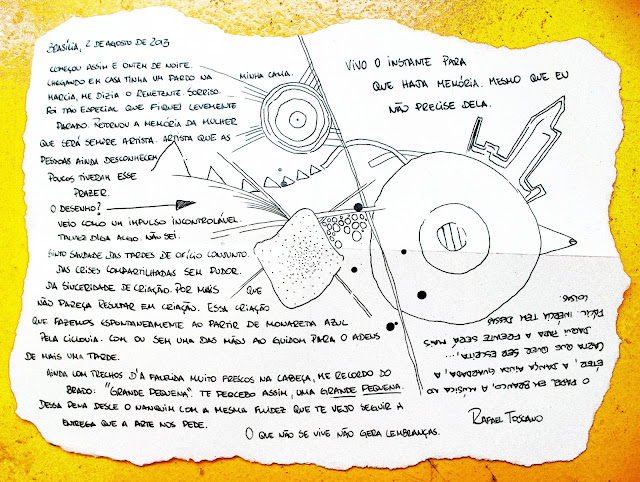 BRASÍLIA, 2 DE AGOSTO DE 2013
COMEÇOU ASSIM E ONTEM DE NOITE.
CHEGANDO EM CASA TINHA UM PARDO NA
MINHA CAMA.
MARCIA, ME DIZIA O REMETENTE. SORRISO.
FOI TAO ESPECIAL QUE FIQUEI LEVEMENTE
PARADO. RETORNOU A MEMÓRIA DA MULHER
QUE SERÁ SEMPRE ARTISTA. ARTISTA QUE AS
PESSOAS AINDA DESCONHECEM
POUCOS TIVERAM ESSE
PRAZER.
O DESENHO?
VEIO COMO UM IMPULSO INCONTROLÁVEL.
TALVEZ DIGA ALGO. NÃO SEI.
SINTO SAUDADE DAS TARDES DE OFÍCIO CONJUNTO.
DAS CRISES COMPARTILHADAS SEM PUDOR.
DA SINCERIDADE DE CRIAÇÃO. POR MAIS QUE
NÃO PAREÇA RESULTAR EM CRIAÇÃO. ESSA CRIAÇÃO
QUE FAZEMOS ESPONTANEAMENTE AO PARTIR DE MONARETA AZUL
PELA CICLOVIA. COM OU SEM UMA DAS MÃOS AO GUIDOM PARA O ADEUS
DE MAIS UMA TARDE.
AINDA COM TRECHOS D'A PAURIDA MUITO FRESCOS NA CABEÇA, ME RECORDO DO
BRADO: "GRANDE PEQUENA". TE PERCEBO ASSIM, UMA GRANDE PEQUENA.
DESSA PENA DESCE O NANQUIM COM A MESMA FLUIDEZ QUE TE VEJO SEGUIR A
ENTREGA QUE A ARTE NOS PEDE.
O QUE NÃO SE VIVE NÃO GERA LEMBRANÇAS.
VIVO O INSTANTE PARA
QUE HAJA MEMÓRIA. MESMO QUE EU
NÃO PRECISE DELA.
O PAPEL EM BRANCO, A MÚSICA AO
ÉTER, A DANÇA AINDA GUARDADA, A
CARTA QUE QUER SER ESCRITA,...
DAQUI PARA A FRENTE SERÁ MAIS
FÁCIL. INÉRCIA TEM DESSAS
COISAS
RAFAEL TOSCANO